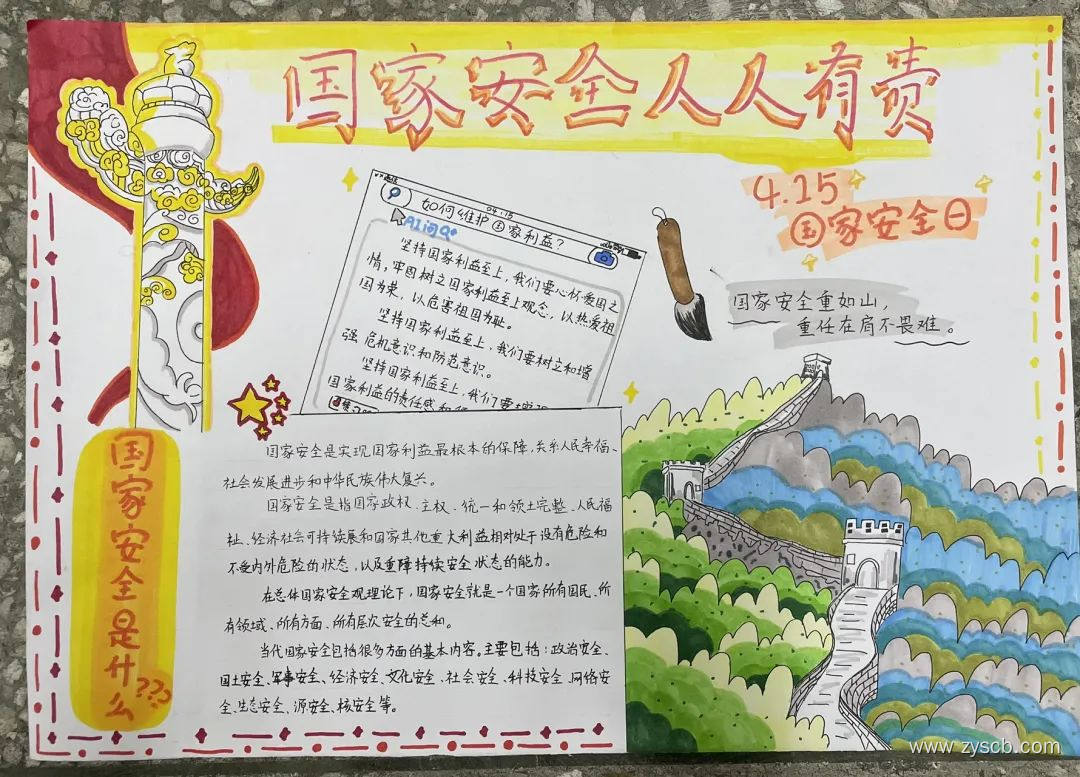 国家安全人人有责
4.15
国家安全日
04.15
如何维护国家利益?
坚持国家利益至上,我们要心怀爱国之
情,牢固树立国家利益至上观念,以热爱祖
国为荣,以危害祖国为耻。
坚持国家利益至上,我们要树立和增
强危机意识和防范意识。
坚持国家利益至上,我们要增
国家利益的责任感和
国家安全重如山,
重任在肩不畏难。
国家安全是什么???
国家安全是实现国家利益最根本的保障,关系人民幸福、
社会发展进步和中华民族伟大复兴。
国家安全是指国家政权、主权、统一和领土完整、人民福
祉、经济社会可持续展和国家其他重大利益相对处于没有危险和
不受内外危险的状态,以及重障持续安全状态的能力。
在总体国家安全观理论下,国家安全就是一个国家所有国民、所
有领域、所有方面、所有层次安全的总和。
当代国家安全包括很多方面的基本内容。主要包括:政治安全、
国土安全、军事安全、经济安全、文化安全、社会安全、科技安全、网络安
全、生态安全、源安全、核安全等。
www.zyscb.com